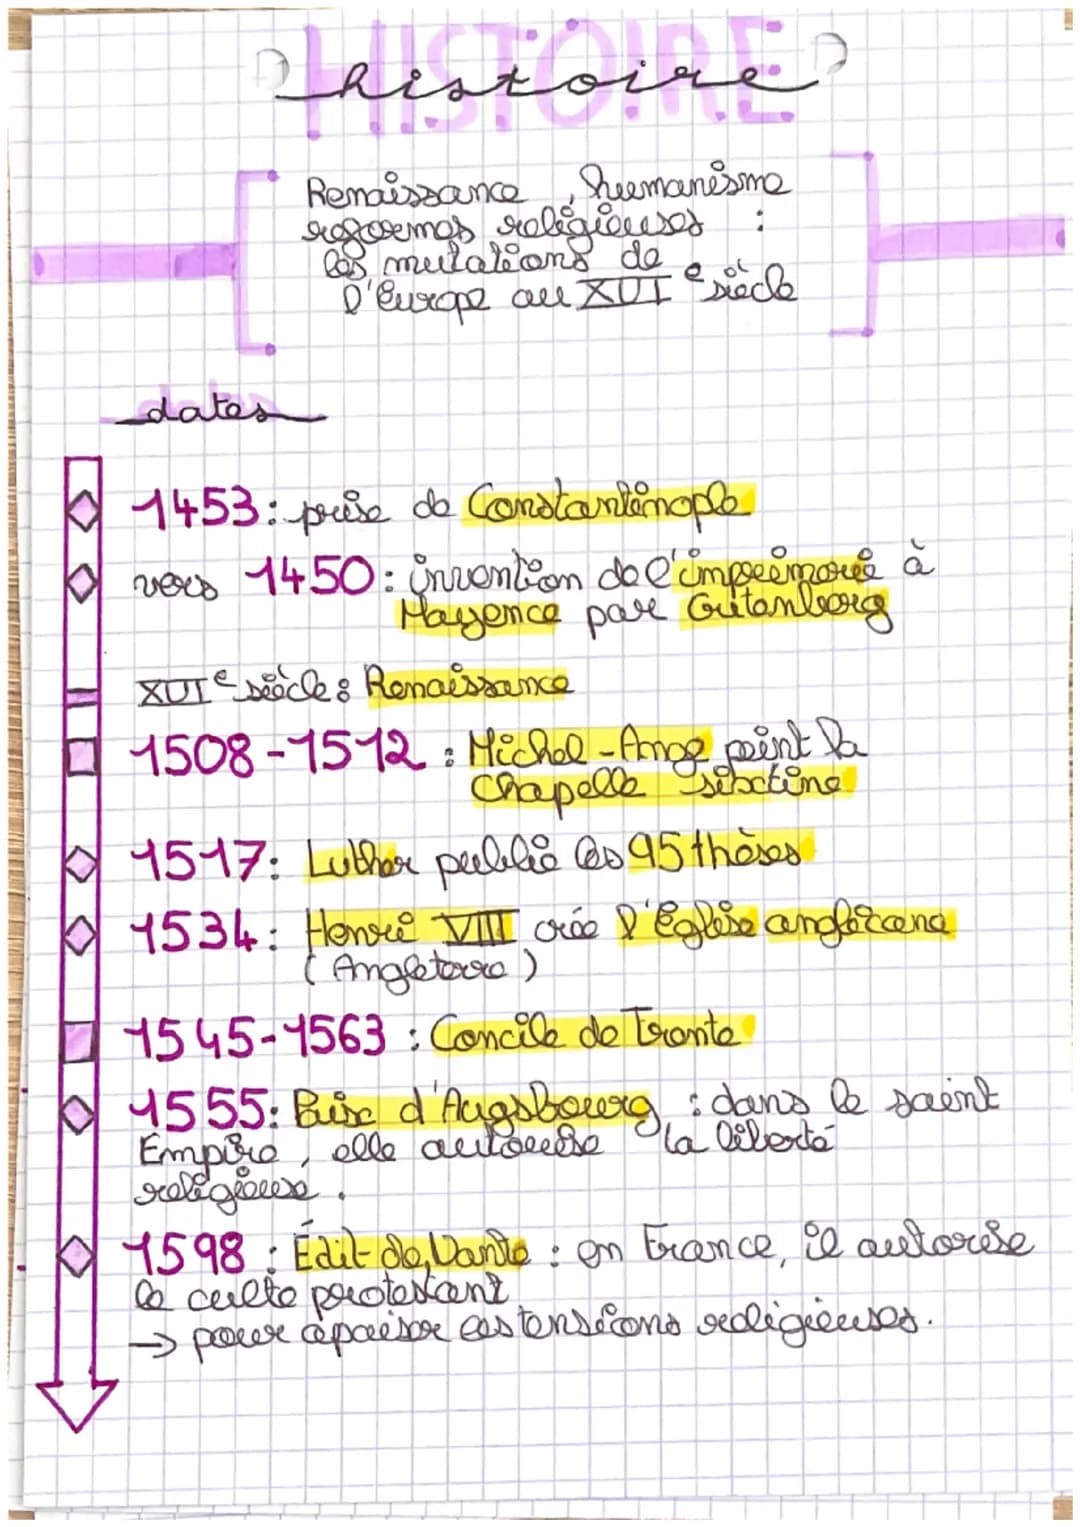 HISTOIRE
histoire
Renaissance, humanisme
reformes religieuses :
les mutations de
l'Europe au XVIe siècle
dates
1453 : prise de Constantinople
vers 1450 : invention de l'imprimerie à
Mayence par Gutenberg
XVIe siècle : Renaissance
1508-1512 : Michel-Ange peint la
Chapelle sixtine
1517 : Luther publie les 95 thèses
1534 : Henri VIII crée l'Église anglicane
(Angleterre)
1545-1563 : Concile de Trente
1555 : Paix d'Augsbourg : dans le saint
Empire, elle autorise la liberté
religieuse.
1598 : Édit de Nante : en France, il autorise
le culte protestant
→ pour apaiser les tensions religieuses.